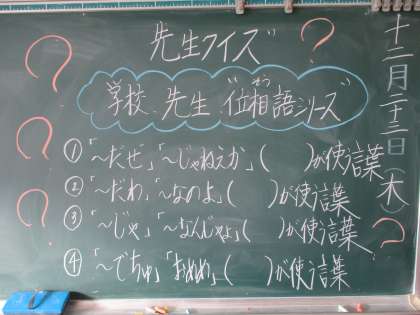 先生クイズ
学校 先生 位相語シリーズ
いそう
①「～だぜ」「～じゃねえか」( )が使う言葉
②「～だわ」「～なのよ」( )が使う言葉
③「～じゃ」「～なんじゃよ」( )が使う言葉
④「～でちゅ」「おめめ」( )が使う言葉
十二月二十三日(木)
? ? ? ? ?